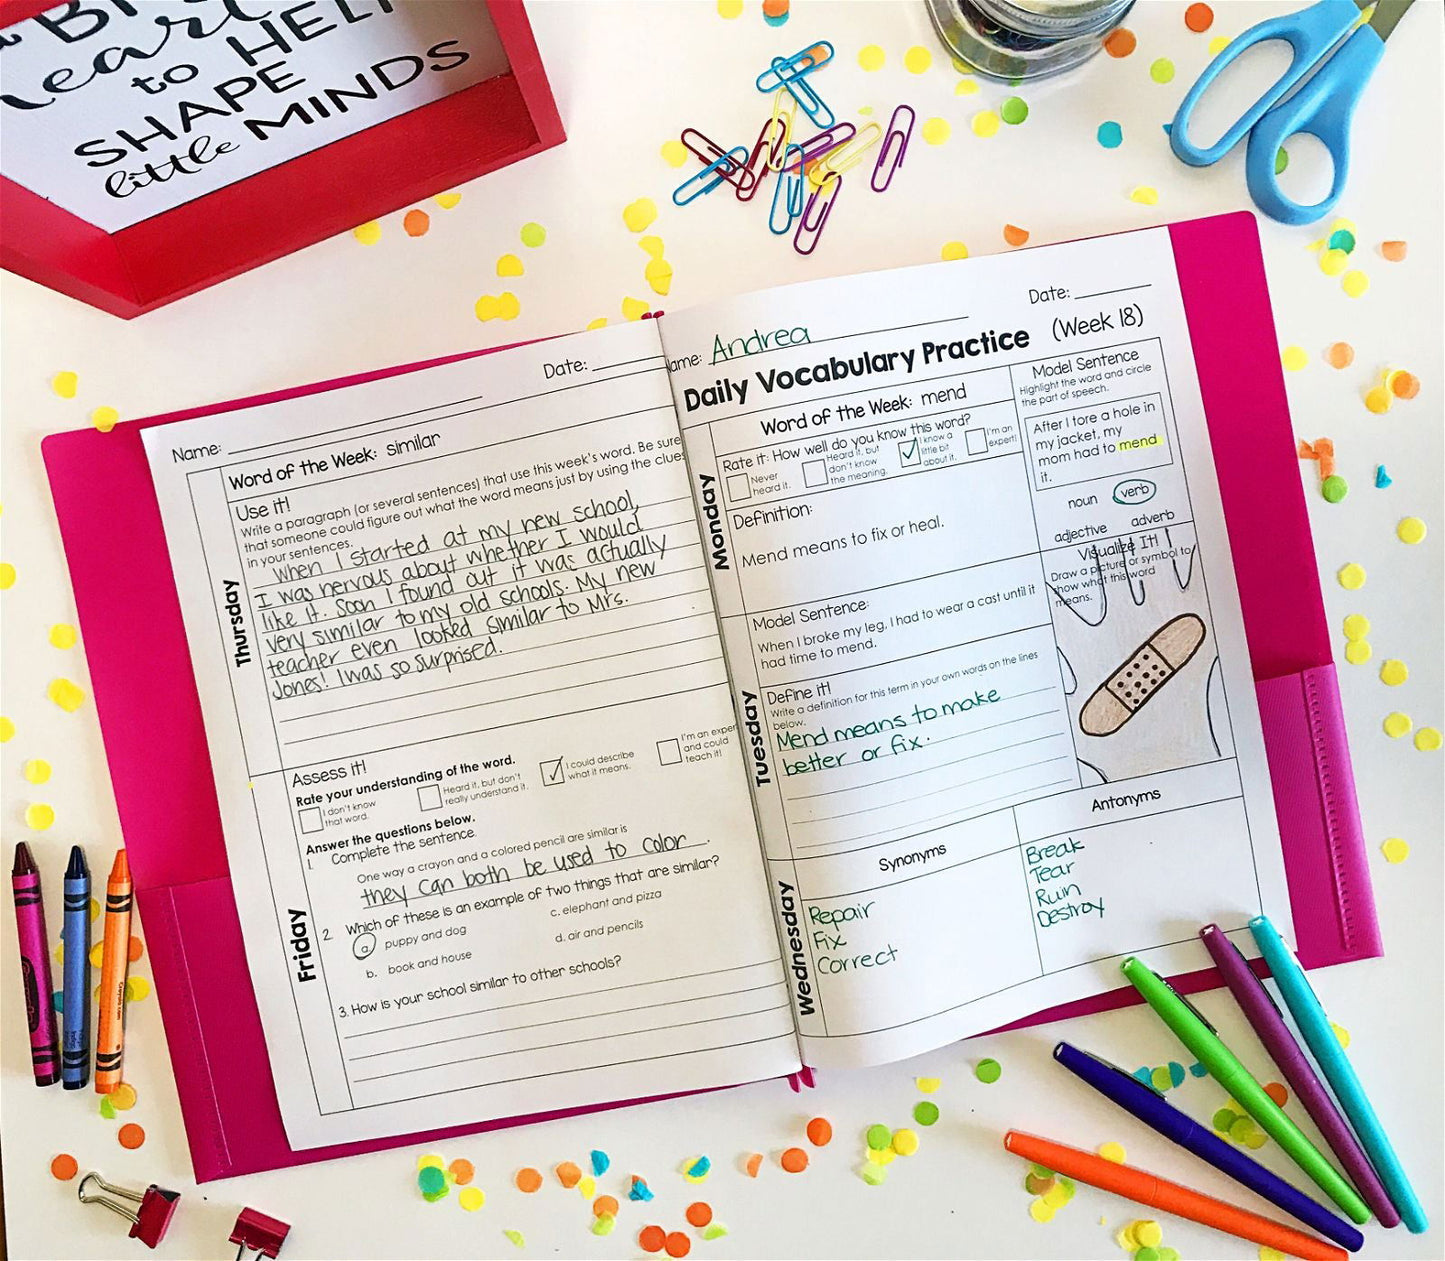 to HELP
SHAPE
little MINDS
Name:
Date:
Word of the Week: similar
Thursday
Use it!
Write a paragraph (or several sentences) that use this week's word. Be sure
that someone could figure out what the word means just by using the clues
in your sentences.
When I started at my new school,
I was nervous about whether I would
like it. Soon I found out it was actually
very similar to my old schools. My new
teacher even looked similar to Mrs.
Jones! I was so surprised.
Friday
Assess it!
Rate your understanding of the word.
I don't know
that word.
Heard it, but don't
really understand it.
I could describe
what it means.
I'm an exper
and could
teach it!
Answer the questions below.
1. Complete the sentence.
One way a crayon and a colored pencil are similar is
they can both be used to color.
2. Which of these is an example of two things that are similar?
a. puppy and dog
c. elephant and pizza
b. book and house
d. air and pencils
3. How is your school similar to other schools?
Name: Andrea
Date:
Daily Vocabulary Practice (Week 18)
Monday
Word of the Week: mend
Rate it: How well do you know this word?
Never
heard it.
Heard it, but
don't know
the meaning.
I know a
little bit
about it.
I'm an
expert!
Definition:
Mend means to fix or heal.
Model Sentence
Highlight the word and circle
the part of speech.
After I tore a hole in
my jacket, my
mom had to mend
it.
noun verb
adjective adverb
Tuesday
Model Sentence:
When I broke my leg, I had to wear a cast until it
had time to mend.
Define it!
Write a definition for this term in your own words on the lines
below.
Mend means to make
better or fix.
Visualize It!
Draw a picture or symbol to
show what this word
means.
Wednesday
Synonyms
Repair
Fix
Correct
Antonyms
Break
Tear
Ruin
Destroy